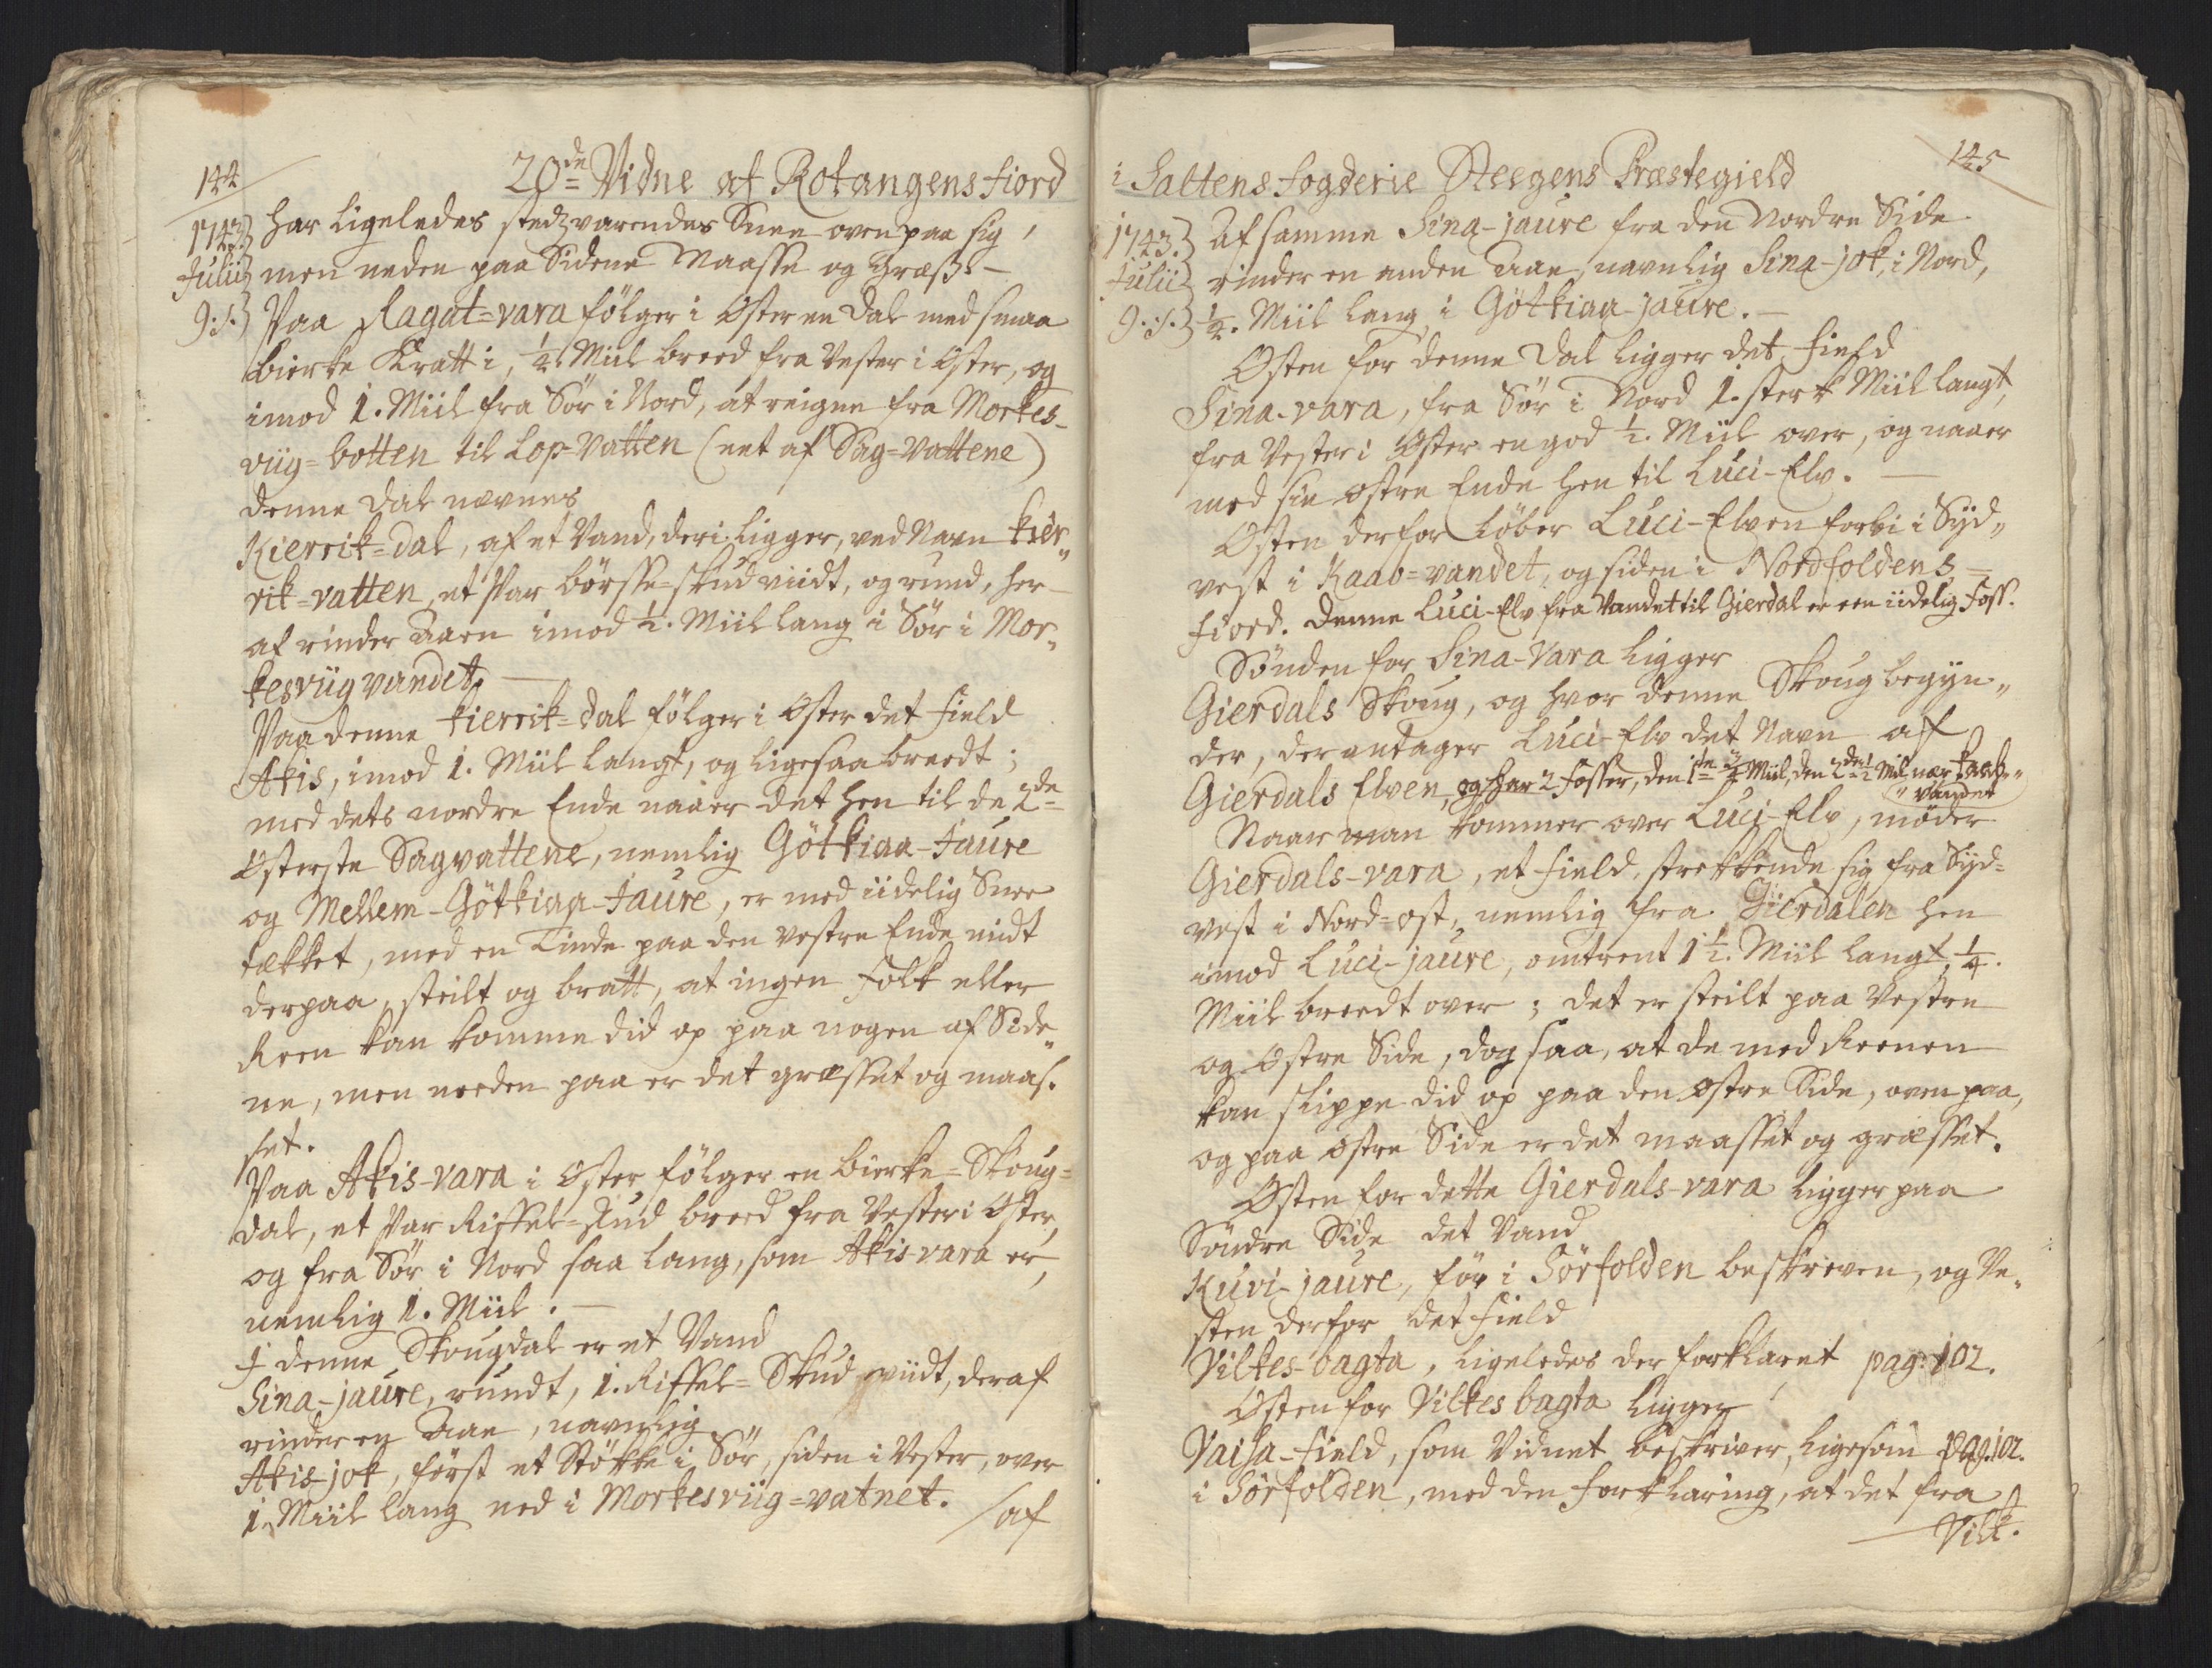 144
20de Vidne af Rotangens fiord
1743.
Julii
9. s.
har ligeledes stedzvarendes Snee oven paa sig,
men neden paa Siderne Maasse og Græß. –
Paa Ragat=vara fölger i Öster en dal med smaa
bierke Kratt i, 1/2 Miil breed fra Vester i Öster, og
imod 1. Miil fra Sör i Nord, at reigne fra Morkes-
viig=botten til Lop-Vatten (eet af Sag=Vattene)
denne dal nævnes
Kierrik=dal, af et Vand, deri ligger, ved Navn Kier„
rik=vatten, et Par börsse=skud viidt, og rund, her-
af rinder Aaen imod 1/2. Miil lang i Sör i Mor„
kesviig vandet. –
Paa denne Kierrik=dal fölger i Öster det field
Akis, imod 1. Miil langt, og ligesaa breedt;
med dets nordre Ende naaer det hen til de 2de
Österste Sagvattene, nemlig Götkiaa-Jaure
og Mellem-Götkiaa-Jaure, er med iidelig Snee
tækket, med en Tinde paa den vestre Ende midt
derpaa, steilt og bratt, at ingen folk eller
Reen kan komme did op paa nogen af Side„
ne, men neden paa er det græsset og maas.
set.
Paa Akis-vara i Öster fölger en bierke=Skoug=
dal, et Par Riffel=Skud breed fra Vester i Öster,
og fra Sör i Nord saa lang, som Akis vara er,
nemlig 1. Miil. –
I denne Skougdal er et Vand
Sina-jaure, rundt, 1. Riffel=Skud viidt, deraf
rinder en Aae, navnlig
Akis-jok, först et Stökke i Sör, siden i Vester, over
1. Miil lang ned i Morkesviig=vatnet.
/af
i Saltens fogderie Steegens Præstegield
145
1743.
Julii
9. s.
Af samme Sina-jaure fra den Nordre Side
rinder en anden Aae, navnlig Sina-jok, i Nord,
1/2. Miil lang i Götkiaa-jaure. –
Östen for denne Dal ligger det field
Sina-vara, fra Sör i Nord 1. sterk Miil langt,
fra Vester i Öster en god 1/2. Miil over, og naaer
med sin östre Ende hen til Luci-Elv. –
Östen derfor löber Luci-Elven forbi i Syd„
vest i Kaab=vandet, og siden i Nordfoldens
fiord. Denne Luci-Elv fra Vandet til Gierdal er een iidelig foss.
Sönden for Sina-Vara ligger
Gierdals Skoug, og hvor denne Skoug begyn„
der, der antager Luci-Elv det Navn af
Gierdals Elven, og har 2 fosser, den 1te 3/4 Miil, den 2den 1/2 Mil nær Kaab„
„vandet
Naar man kommer over Luci-Elv, möder
Gierdals-vara, et field, strekkende sig fra Syd=
vest i Nord=ost, nemlig fra Gierdalen hen
imod Luci-jaure, omtrent 1 1/2. Miil langt, 1/4.
Miil breedt over; det er steilt paa Vestre
og Östre Side, dog saa, at de med Reenen
kan slippe did op paa den östre Side, oven paa,
og paa östre Side er det maasset og græsset.
Östen for dette Gierdals-vara ligger paa
Söndre Side det Vand
Kuvi-jaure, för i Sörfolden beskreven, og Ve„
sten derfor det field
Vilkes-bagta, ligeledes der forklaret pag: 102.
Östen for Vilkes bagta ligger
Vaisa-field, som Vidnet beskriver, ligesom pag. 102.
i Sörfolden, med den forklaring, at det fra
Vilk.